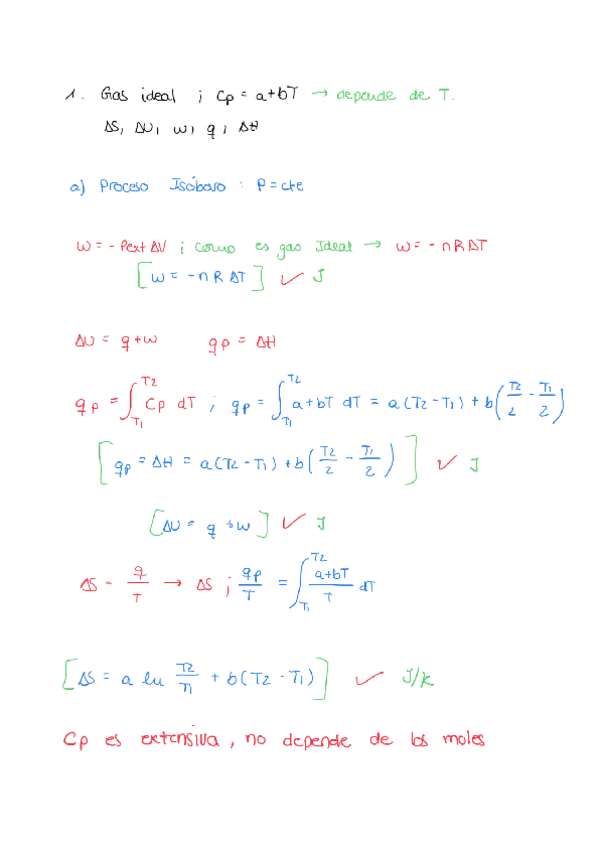 1. Gas ideal ; Cp = a+bT → depende de T.
ΔS, ΔU, w, q, ΔH
a) Proceso Isóbaro : P=cte
W = - Pext ΔV ; como es gas Ideal → W = - nRΔT
[W = - n R ΔT] ✓ J
ΔU = q+w qp = ΔH
qp = ∫_{T1}^{T2} Cp dT ; qp = ∫_{T1}^{T2} a+bT dT = a(T2-T1) + b(T2/2 - T1/2)
[qp = ΔH = a(T2-T1) + b(T2/2 - T1/2)] ✓ J
[ΔU = q +w] ✓ J
ΔS - q/T → ΔS ; qp/T = ∫_{T1}^{T2} a+bT/T dT
[ΔS = a ln T2/T1 + b(T2-T1)] ✓ J/K
Cp es extensiva, no depende de los moles